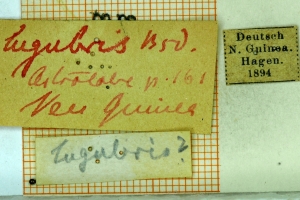 Lugubris Bsd.
Astrolabe p. 161
Neu Guinea
Deutsch
N. Guinea.
Hagen.
1894
Lugubris?